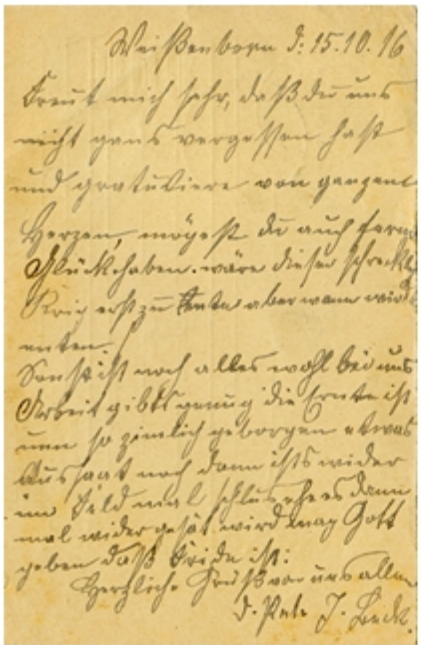 Weißenborn d: 15.10.16
Freut mich sehr, daß du uns
nicht gans vergessen hast
und gratuliere von ganzem
Herzen, mögest du auch ferner
Glück haben. wäre dieser schreckl
Krig erst zu Ente aber wann wird
enten.
Sonst ist noch alles wohl bei uns
Arbeit gibts genug die Ernte ist
nun so zimlich geborgen etwas
Aussaat noch dann ists wider
im Feld mal schlus ehe es dann
mal wider gesät wird mag Gott
geben daß Fride ist:
Herzliche Grüß von uns allen
d. J. Beck.